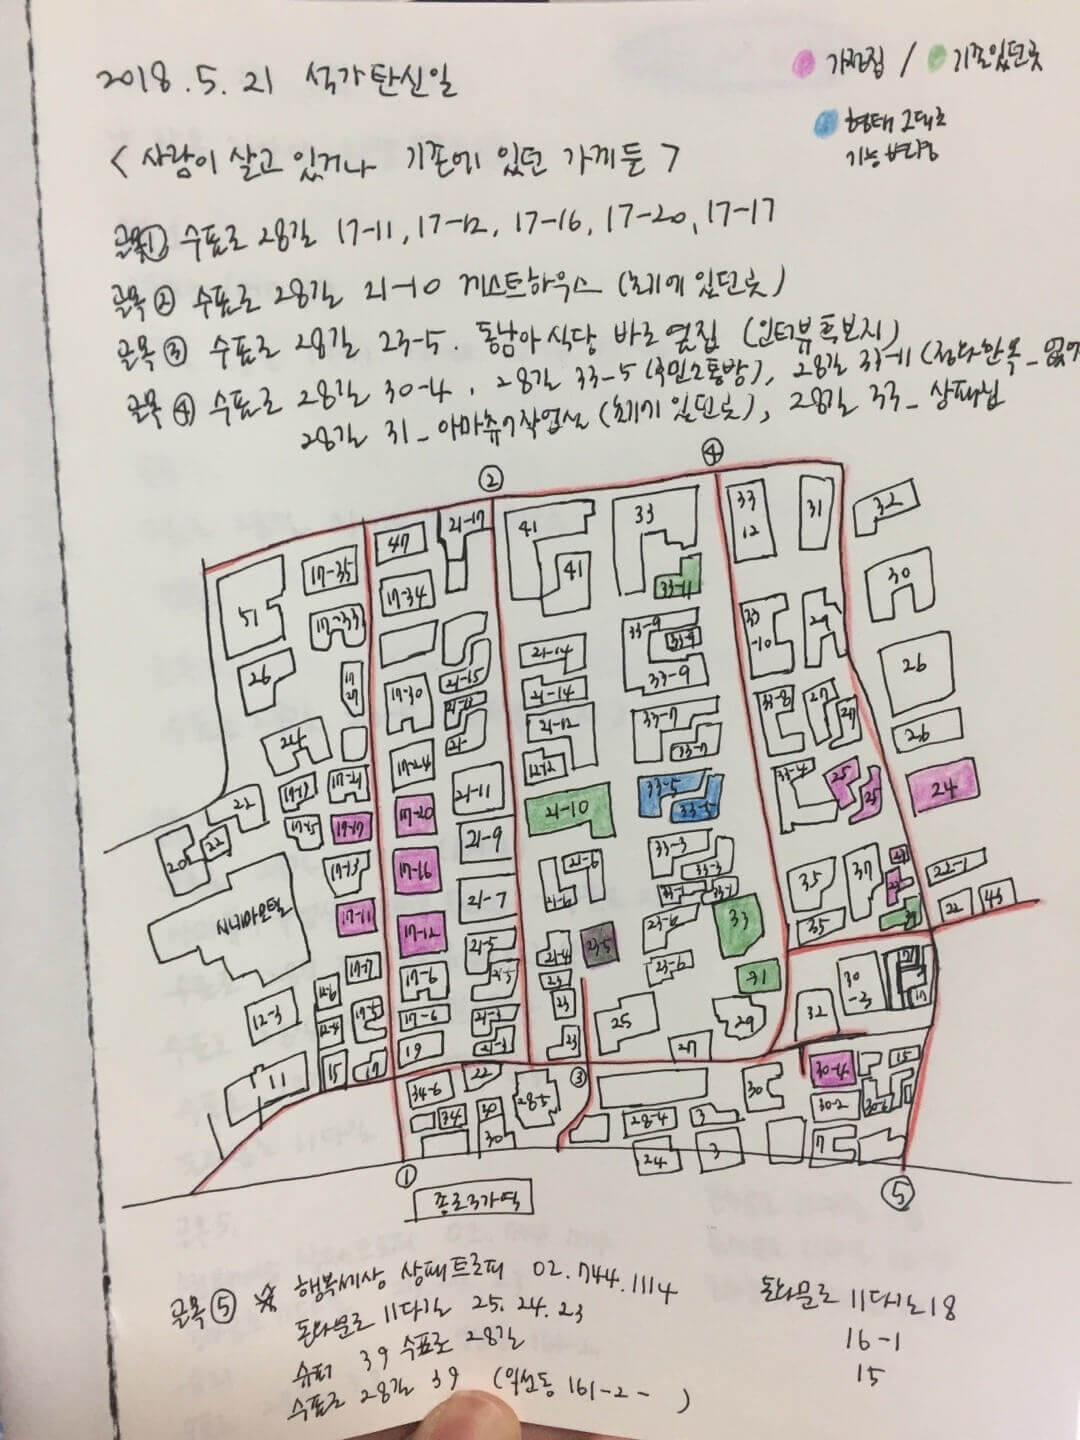 2018.5.21 석가탄신일
가정집 / 기존있던곳
형태 그대로
기능 변경
<사람이 살고 있거나 기존에 있던 가게들>
골목① 수표로 28길 17-11, 17-12, 17-16, 17-20, 17-17
골목② 수표로 28길 21-10 게스트하우스 (초기에 있던곳)
골목③ 수표로 28길 23-5. 동남아 식당 바로 옆집 (인터뷰 후보지)
골목④ 수표로 28길 30-4, 28길 33-5 (국민소통방), 28길 33-11
28길 31_ 아마츄어작업실 (초기 있던곳), 28길 33_ 상패집
② ④
47 21-17 41 33 33 12 31 32
51 17-35 17-34 41 33-11 30
17-33 33-9 33-10 29
26 17 27 17-30 21-15 21-14 33-9 33-9 26
24 21-14 33-7 33-8 27 27 26
17-24 21-12 33-7 33-4 25
22 17-21 17-20 21-11 21-10 33-5 33-5 25 24
20 22 17-15 17-17 21-9 33-3
시네마모텔 17-13 17-16 21-7 21-6 33-3 35 37 23 22-1
17-11 17-12 21-6 23-6 33 35 39 22 43
17-17 17-6 21-5 21-5 21-4 23-5 23-6 31 30-3
12-3 17-5 17-6 23 23 25 29 32
11 15 19 23 27
34-6 22 28-5 ③ 30 30-4 15
34 30 30 28-4 3 30-2
24 3 7
① 종로3가역 ⑤
골목⑤ ☆ 행복세상 상패트로피 02.744.1114
돈화문로 11다길 25. 24. 23
슈퍼 39 수표로 28길
수표로 28길 39 (익선동 161-2- )
돈화문로 11다길 18
16-1
15